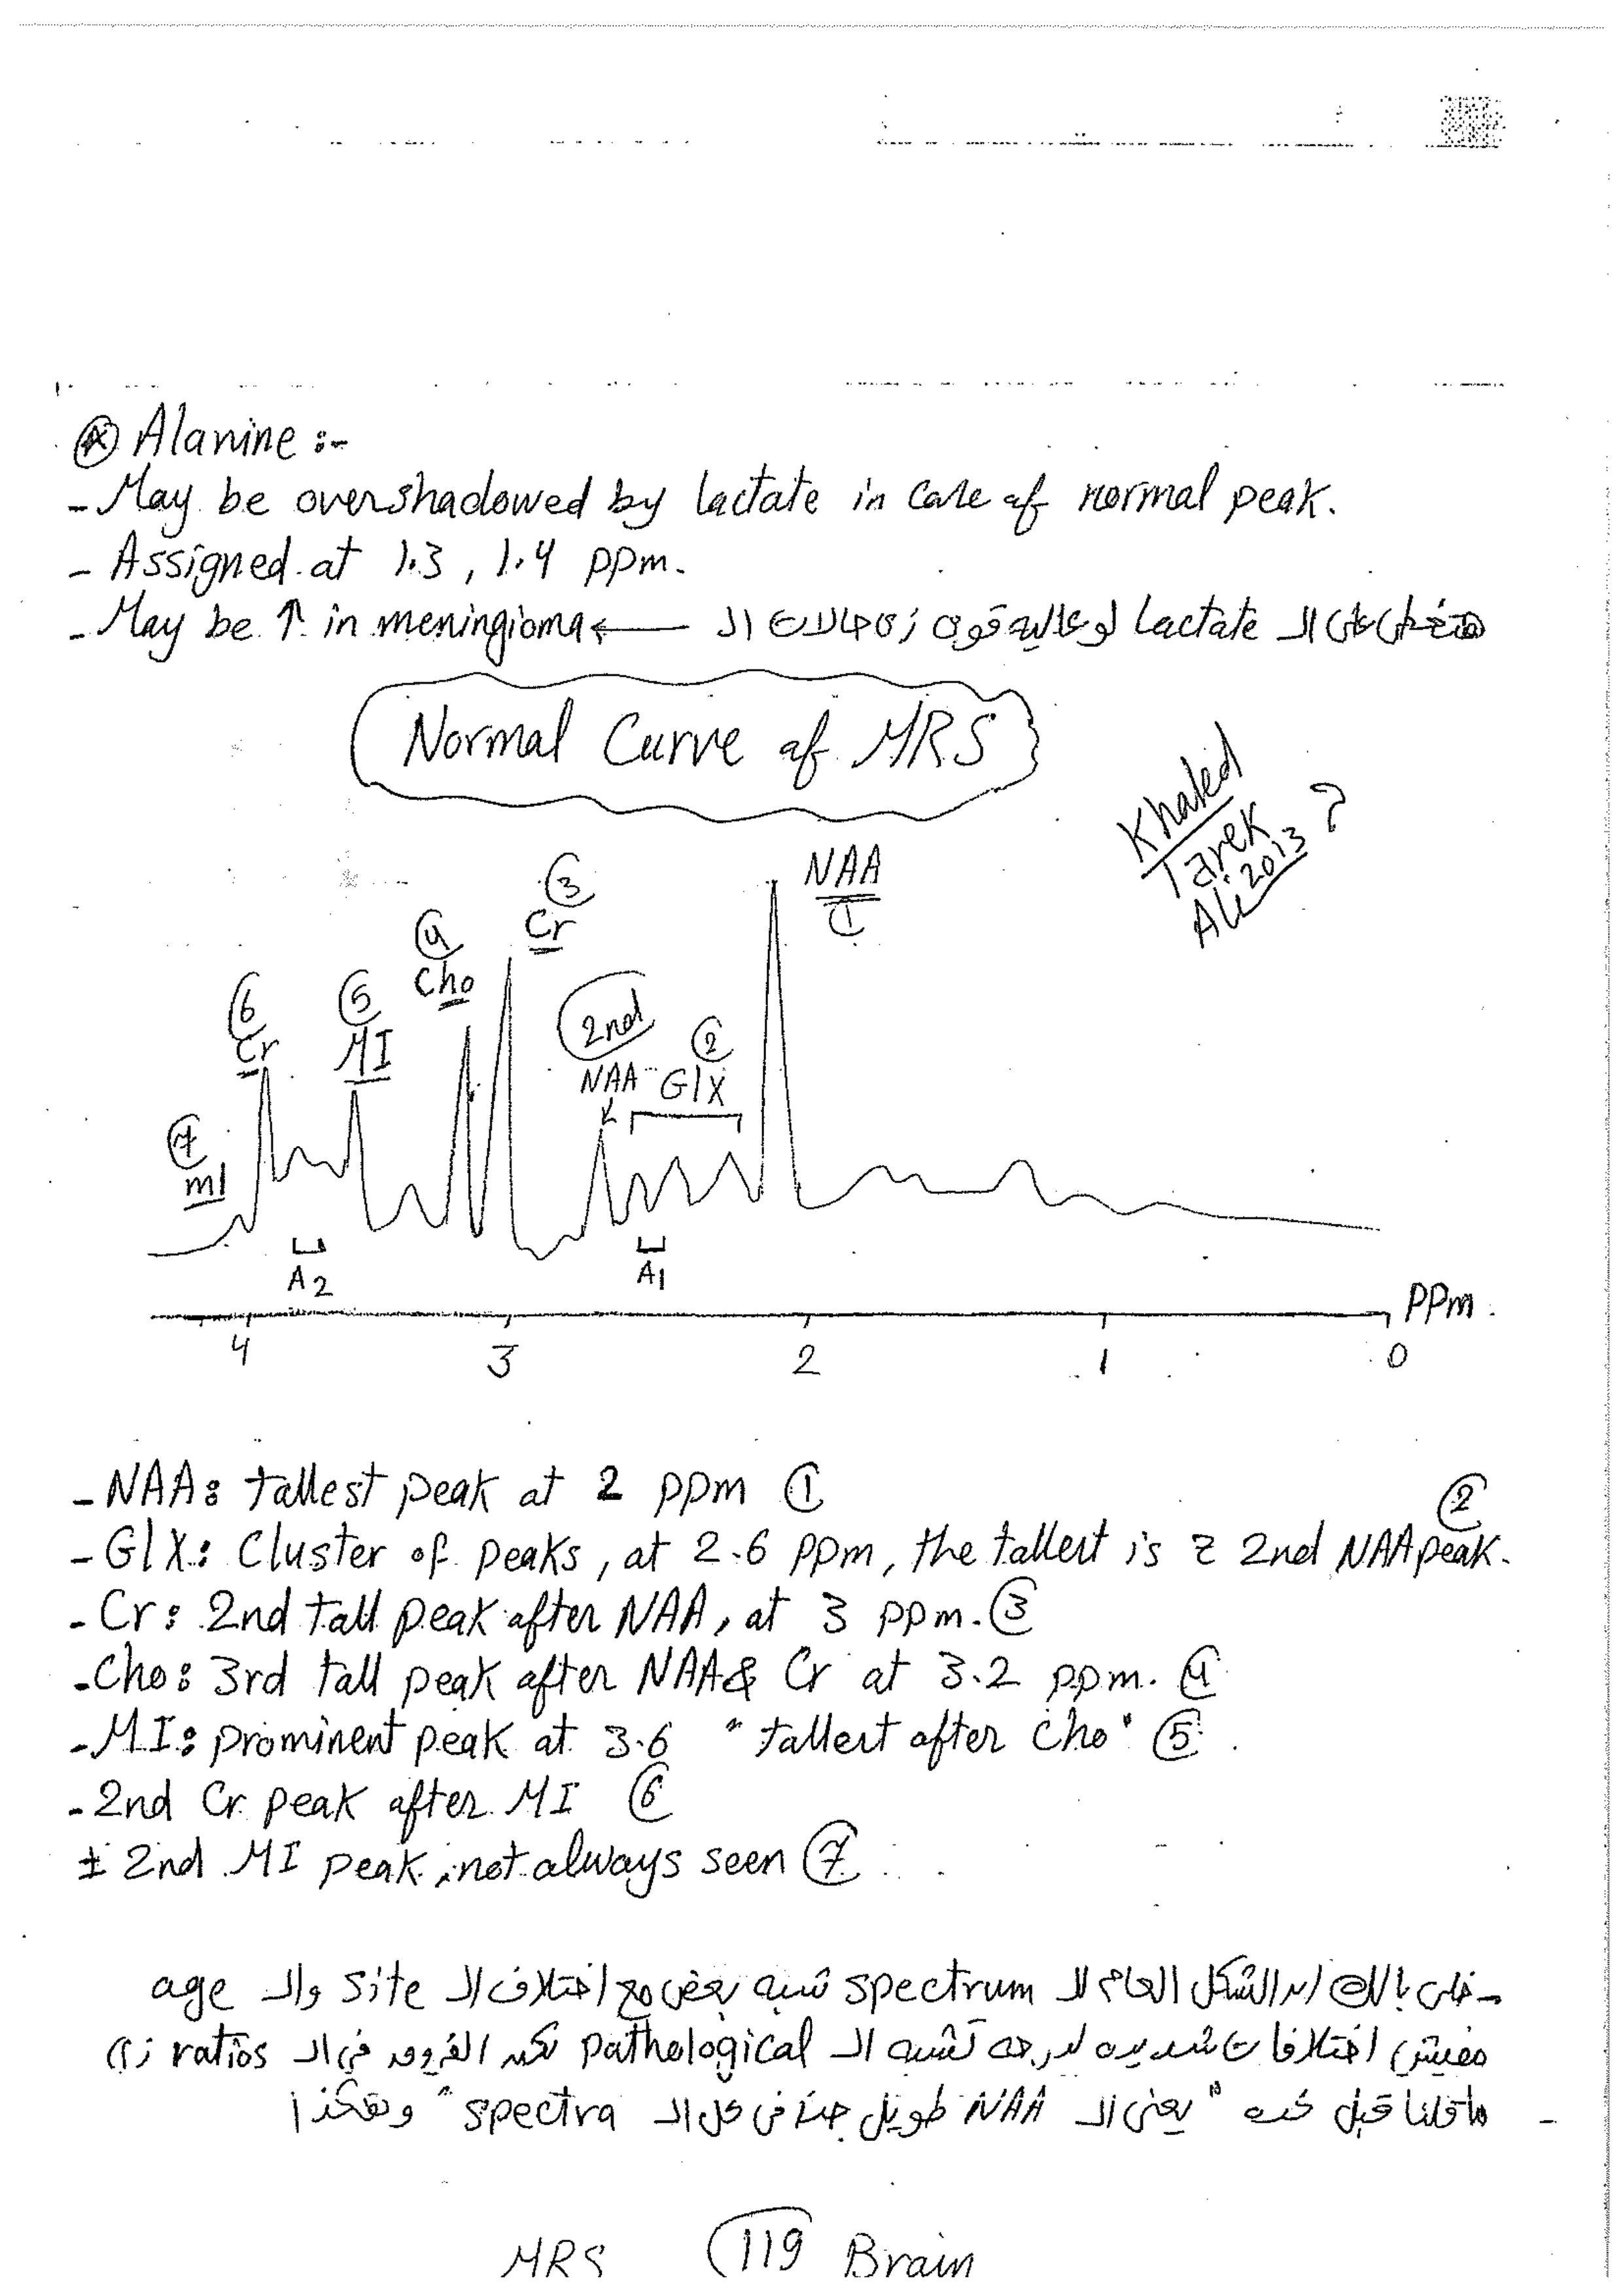 Ⓐ Alanine :-
- May be overshadowed by lactate in case of normal peak.
- Assigned at 1.3 , 1.4 ppm.
- May be ↑ in meningioma ← هتغطى على الـ Lactate لو عاليه قوى زى حالات الـ
Normal Curve of MRS
Khaled
Tarek
Ali 2013
NAA
①
③
Cr
④
Cho
⑥
Cr
⑤
MI
2nd
②
NAA Glx
⑦
mI
A2
A1
PPm.
4 3 2 1 0
- NAA: tallest peak at 2 ppm ①
- Glx: Cluster of peaks, at 2.6 ppm, the tallest is 2nd NAA peak. ②
- Cr: 2nd tall peak after NAA, at 3 ppm. ③
- Cho: 3rd tall peak after NAA & Cr at 3.2 ppm. ④
- MI: prominent peak at 3.6 "tallest after Cho" ⑤
- 2nd Cr peak after MI ⑥
± 2nd MI peak, not always seen ⑦
- خلى بالك ان الشكل العام للـ spectrum شبه بعض مع اختلاف الـ site والـ age
مفيش اختلافات شديده لدرجه تشبه الـ pathological لكن الفروق فى الـ ratios زى
ما قلنا قبل كده "يعنى الـ NAA طويل جدًا فى كل الـ spectra" وهكذا
MRS 119 Brain